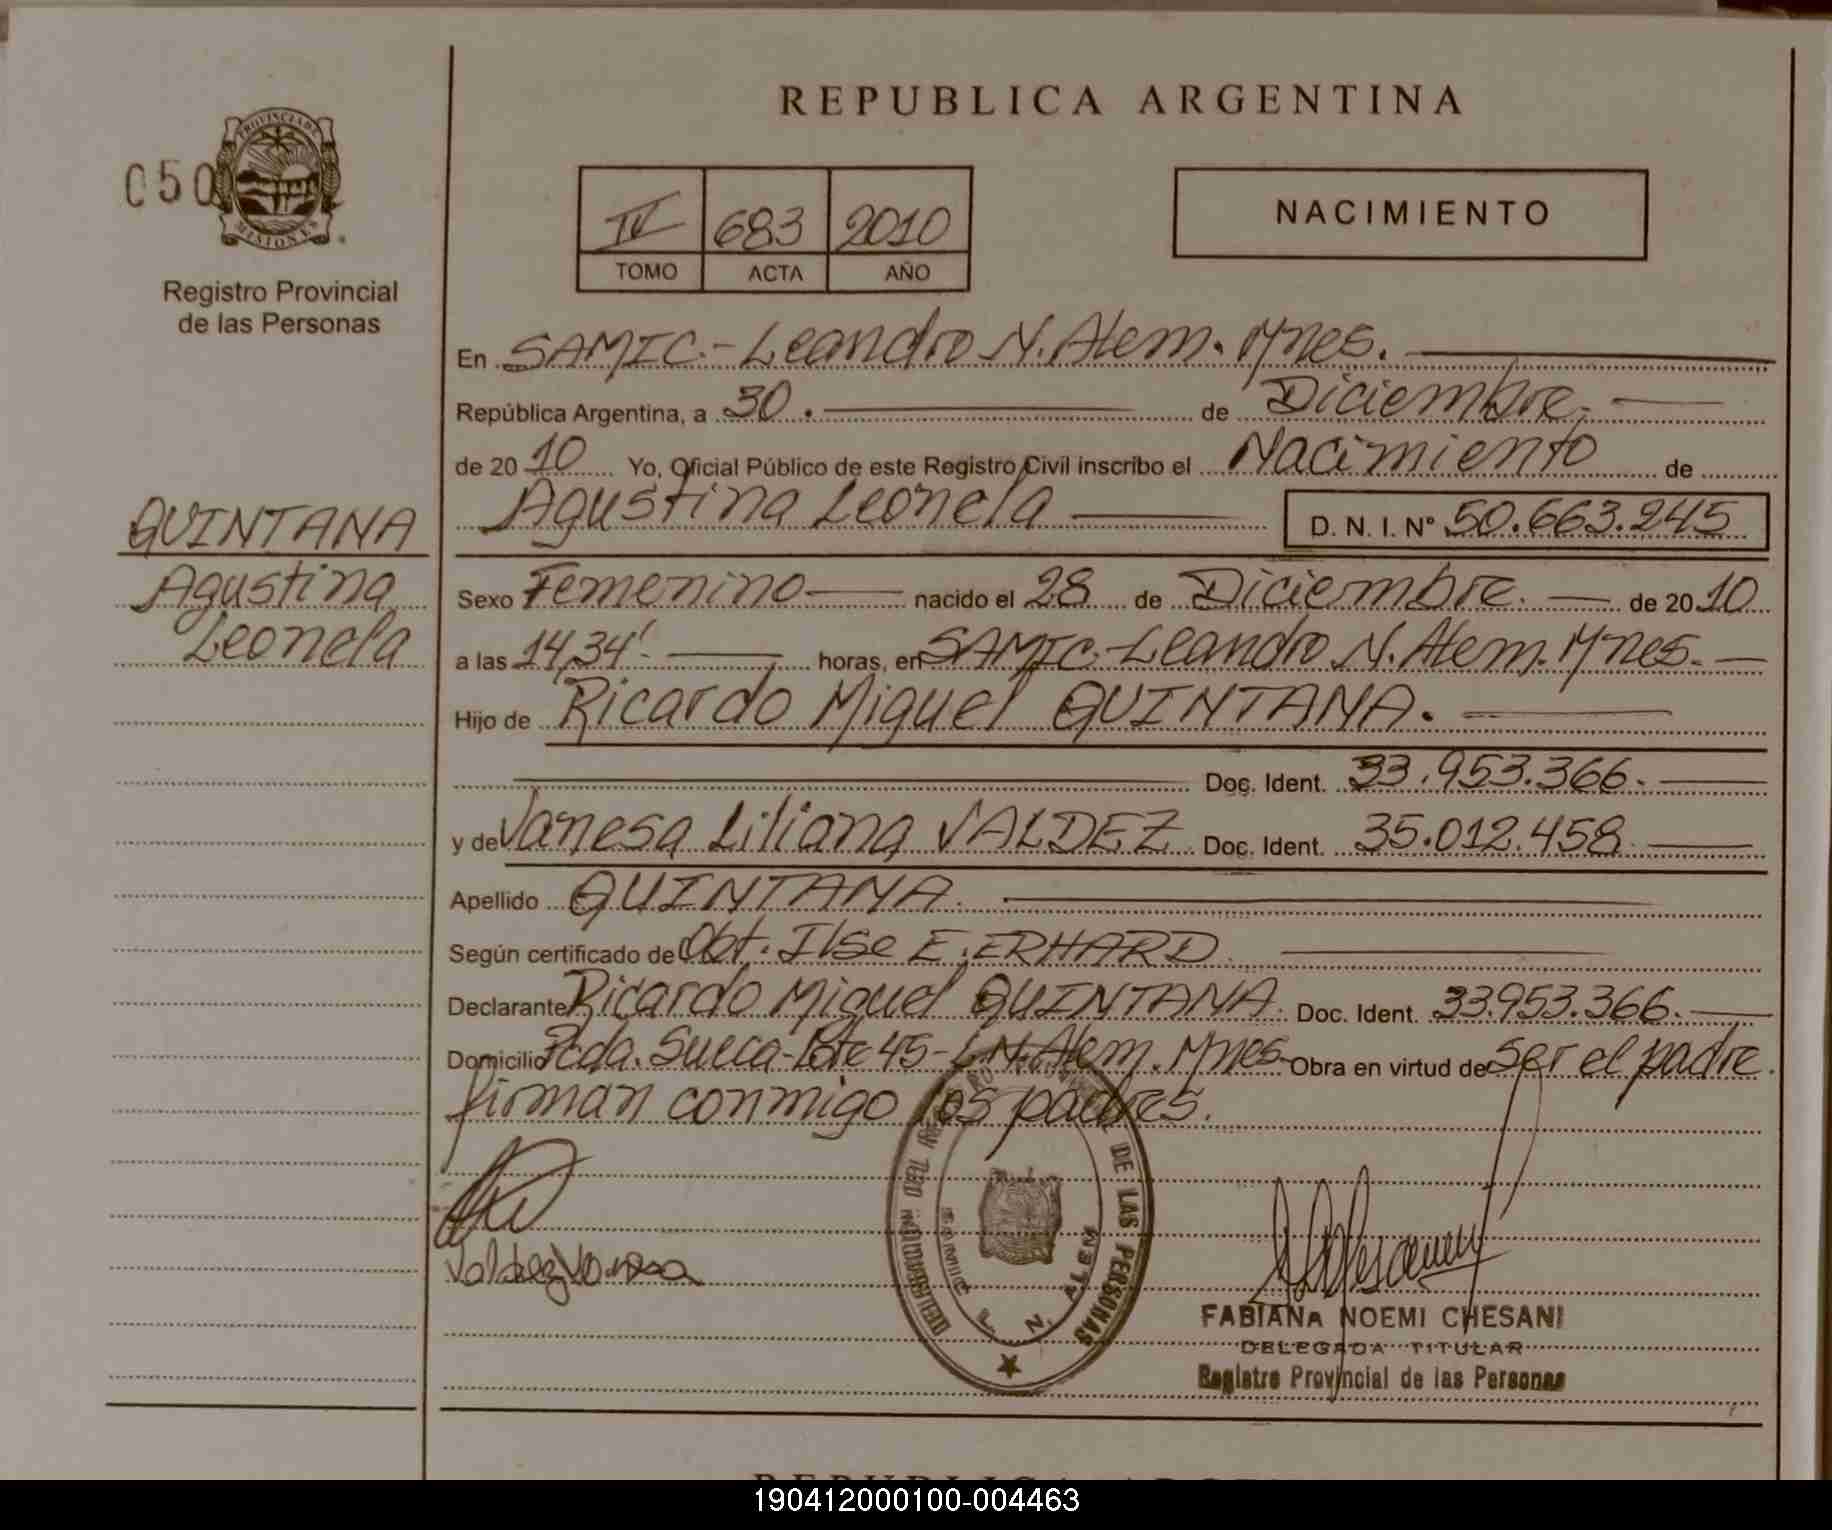 REPUBLICA ARGENTINA
050
PROVINCIA DE
MISIONES
Registro Provincial
de las Personas
IV 683 2010
TOMO ACTA AÑO
NACIMIENTO
En SAMIC.- Leandro N. Alem. Mnes.
República Argentina, a 30. de Diciembre.
de 2010 Yo, Oficial Público de este Registro Civil inscribo el Nacimiento de
Agustina Leonela D. N. I. Nº 50.663.245
QUINTANA
Agustina
Leonela
Sexo Femenino nacido el 28 de Diciembre. de 2010
a las 14,34'. horas, en SAMIC.-Leandro N. Alem. Mnes.
Hijo de Ricardo Miguel QUINTANA.
Doc. Ident. 33.953.366.
y de Vanesa Liliana VALDEZ Doc. Ident. 35.012.458
Apellido QUINTANA.
Según certificado de Obt. Ilse E. ERHARD.
Declarante Ricardo Miguel QUINTANA. Doc. Ident. 33.953.366.
Domicilio Pcda. Sueca-Lote 45-L.N. Alem. Mnes. Obra en virtud de ser el padre.
firman conmigo los padres.
Valdez Vanesa
DE LAS PERSONAS
SAMIC L. N. ALEM
FABIANA NOEMI CHESANI
DELEGADA TITULAR
Registro Provincial de las Personas
190412000100-004463